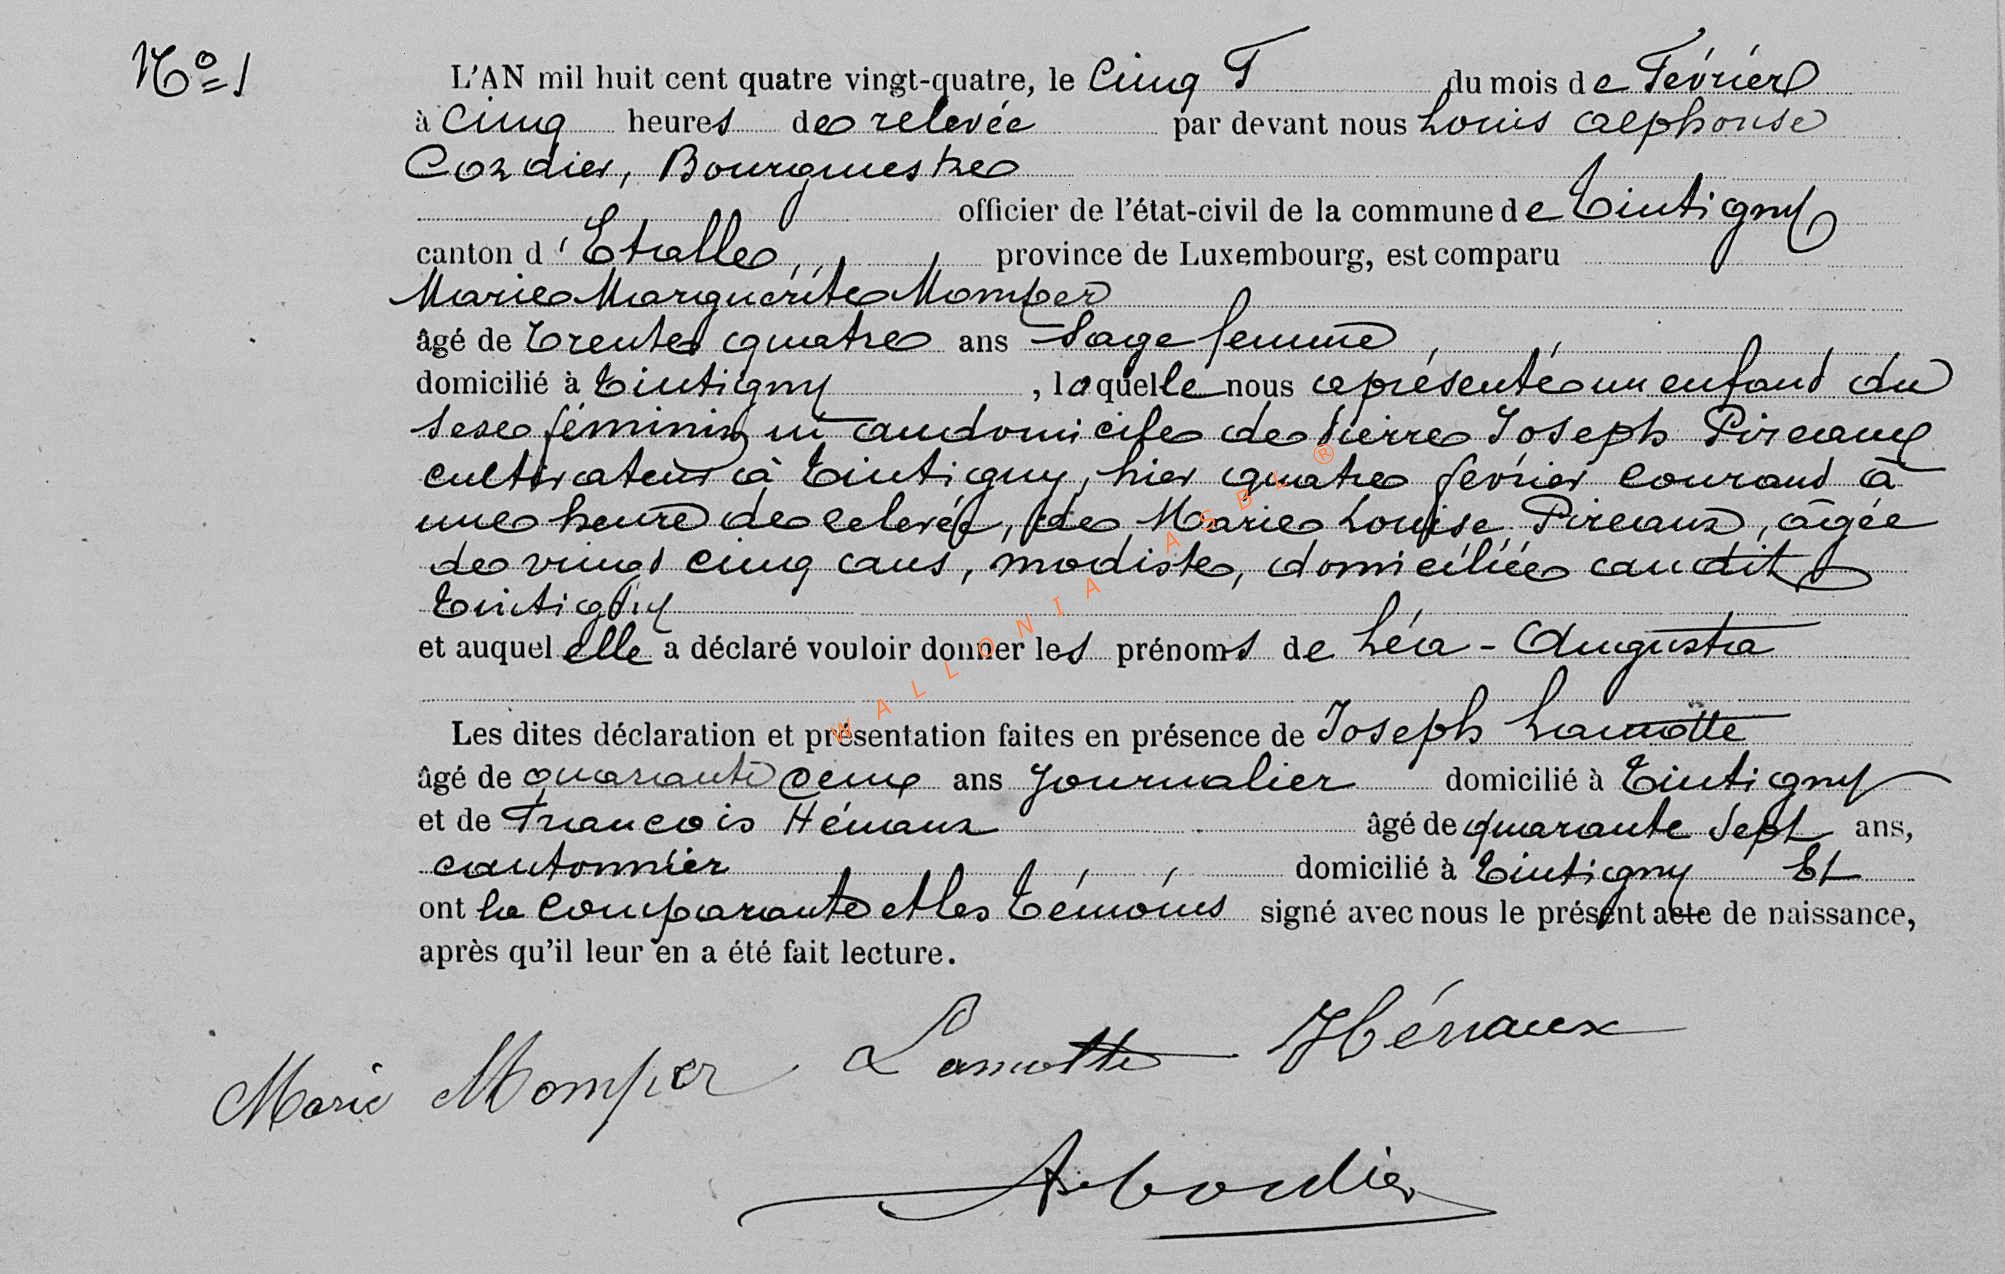 Nº 1
L'AN mil huit cent quatre vingt-quatre, le Cinq du mois de Février
à Cinq heures de relevée par devant nous Louis Alphonse
Cordier, Bourgmestre
officier de l'état-civil de la commune de Tintigny
canton d'Etalle, province de Luxembourg, est comparu
Marie Marguerite Momper
âgé de trente quatre ans Sage femme
domicilié à Tintigny, laquelle nous a présenté un enfant du
sexe féminin, né au domicile de Pierre Joseph Pireaux
cultivateur à Tintigny, hier quatre février courant à
une heure de relevée, de Marie Louise Pireaux, âgée
de vingt cinq ans, modiste, domiciliée au dit
Tintigny
et auquel elle a déclaré vouloir donner les prénoms de Léa - Augusta
Les dites déclaration et présentation faites en présence de Joseph Lamotte
âgé de quarante deux ans Journalier domicilié à Tintigny
et de François Hénaux âgé de quarante sept ans,
cantonnier domicilié à Tintigny Et
ont la comparante et les témoins signé avec nous le présent acte de naissance,
après qu'il leur en a été fait lecture.
Marie Momper Lamotte Hénaux
A Cordier
WALLONIA ASBL ®